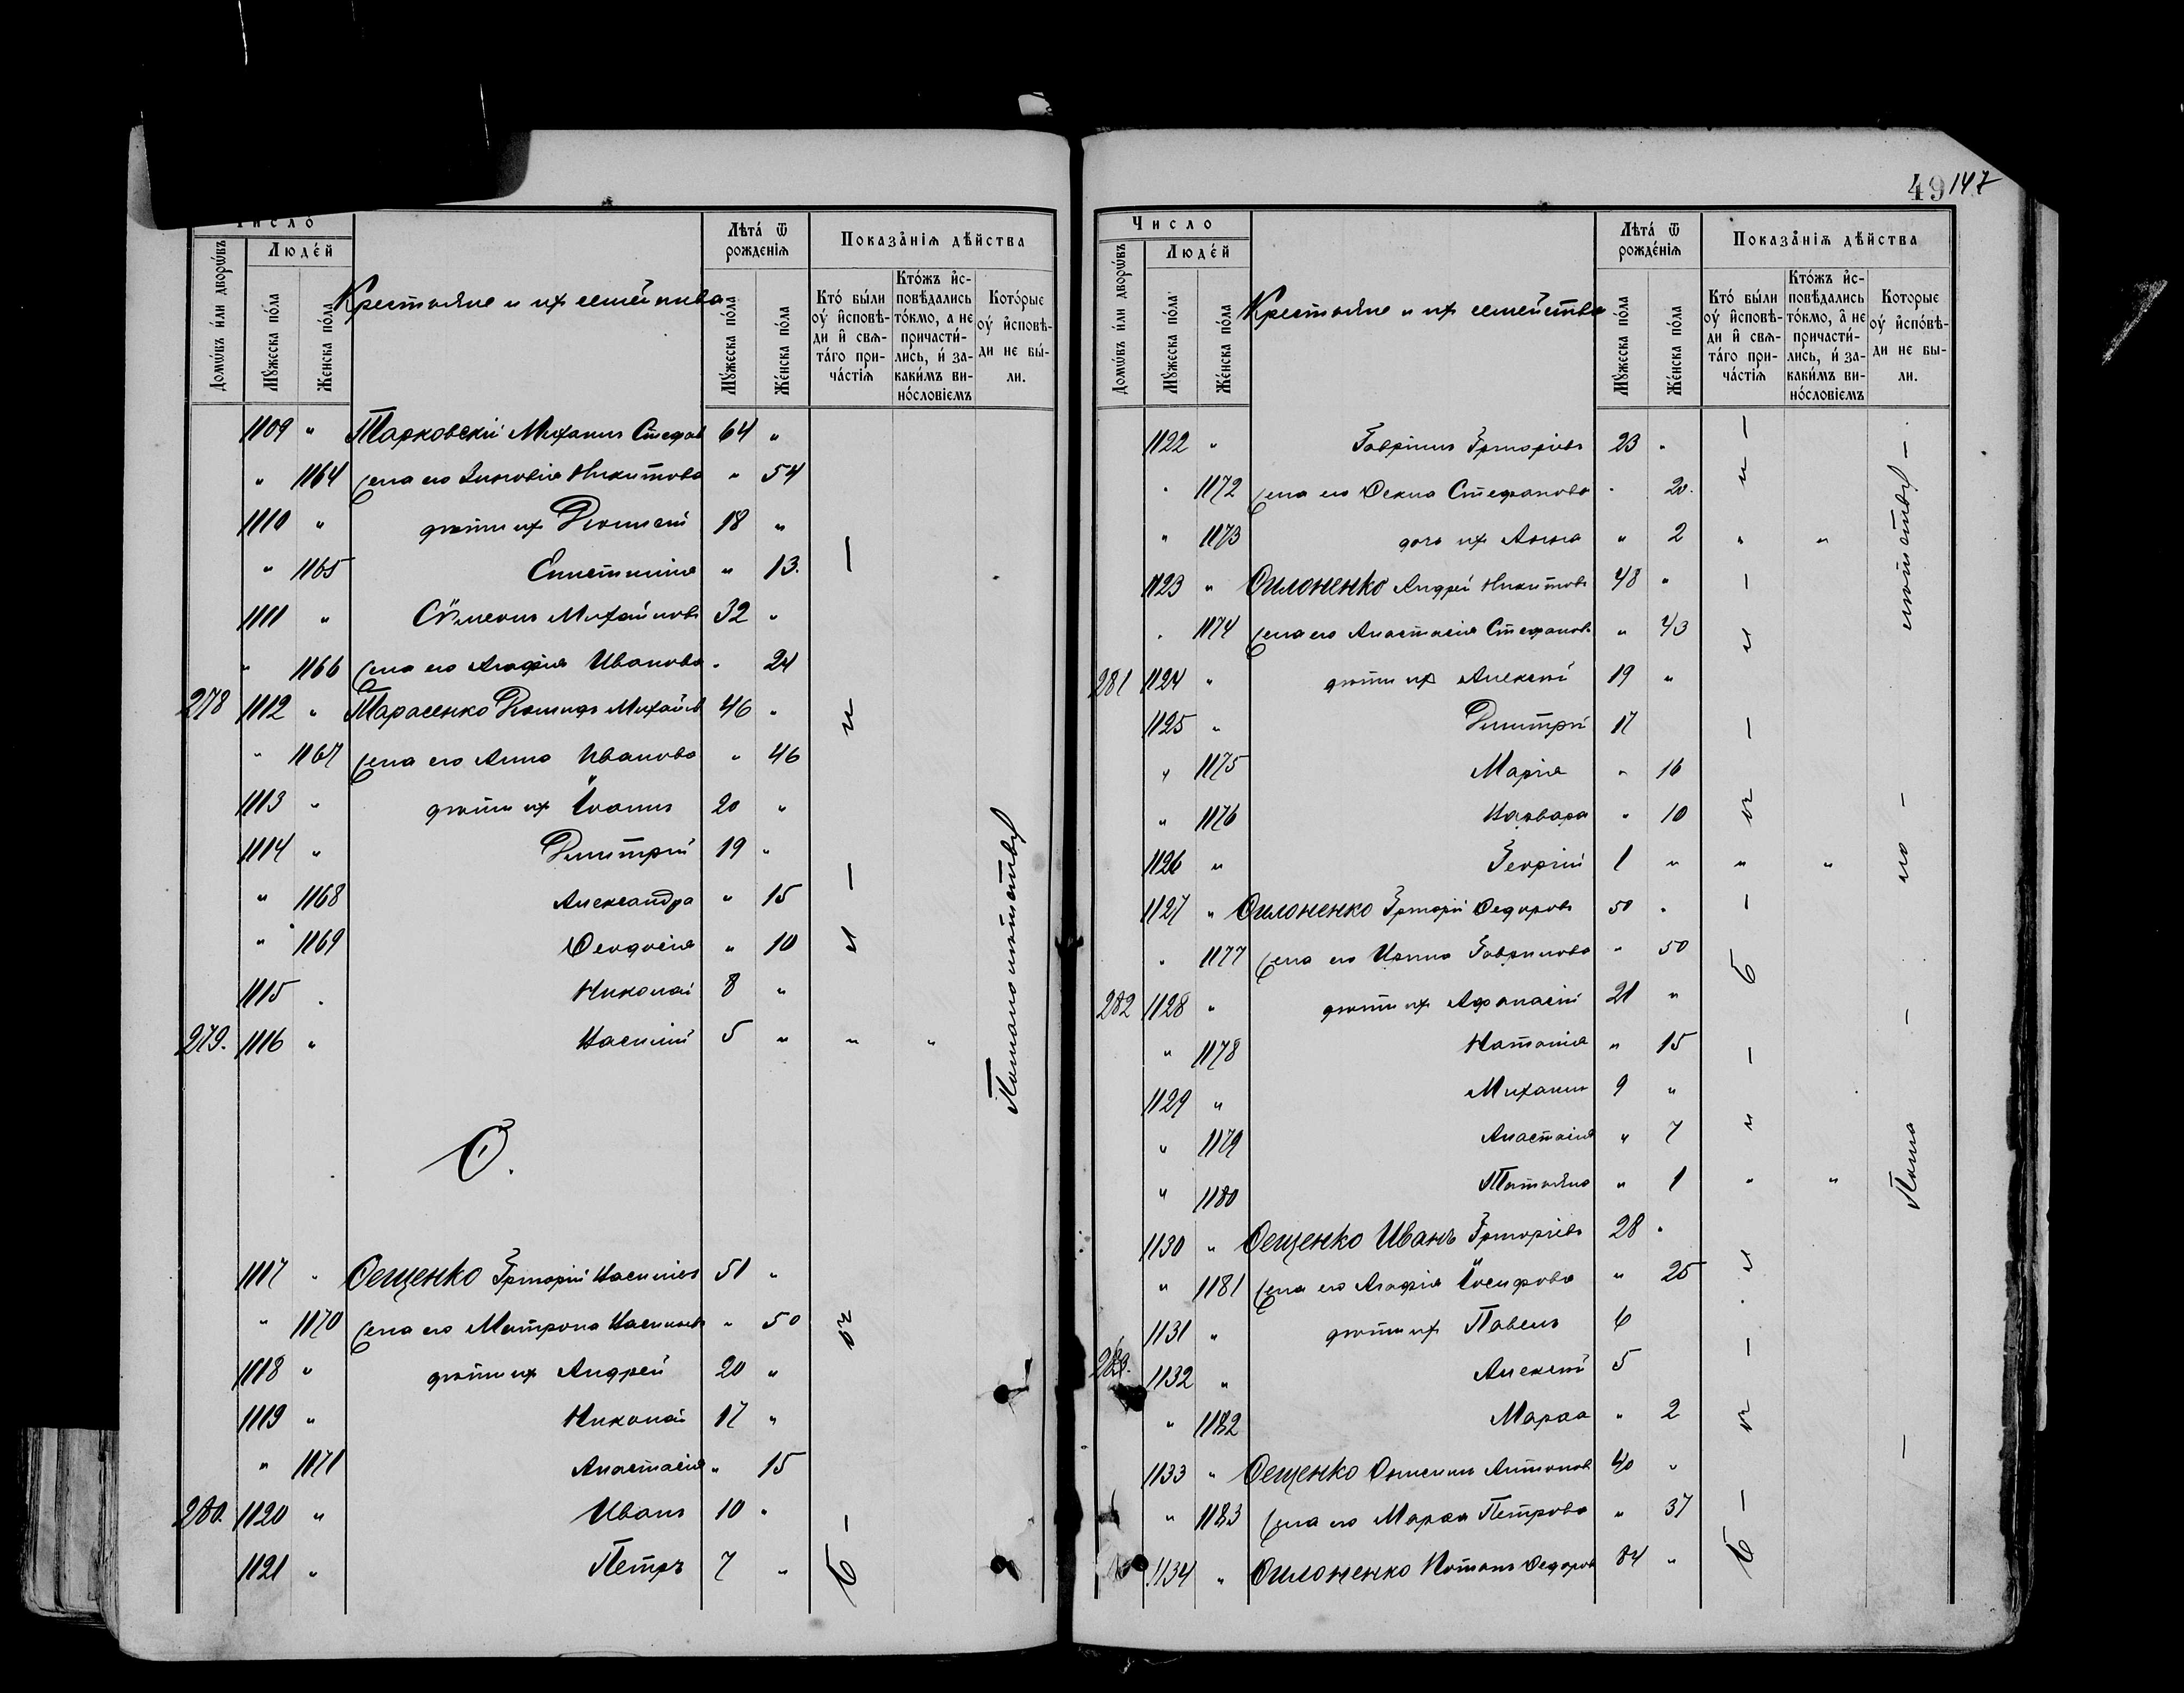 Число
Людей
Домѡвъ или дворѡвъ
Мꙋжеска пола
Женска пола
Крестьяне и их семейства
Лѣта ѿ рожденїѧ
Мꙋжеска пола
Женска пола
Показанїѧ дѣйства
Кто были оу исповѣди и свѧтаго причастїѧ
Ктожъ исповѣдались токмо, а не причастились, и за какимъ винословїемъ
Которые оу исповѣди не были.
1109 " Тарковскій Михаилъ Стефан 64 "
" 1164 жена его Зиновія Никитова " 54
1110 " дѣти их Діонисій 18 "
" 1165 " 13.
1111 " Сѵмеонъ Михайлов 32 "
" 1166 жена его Агафія Иванова " 24
278 1112 " Тарасенко Михайлов 46 "
" 1167 жена его Анна Иванова " 46
1113 " дѣти их Іоаннъ 20 "
1114 " Димитрій 19 "
" 1168 Александра " 15
" 1169 Ѳеодосія " 10
1115 " Николай 8 "
279. 1116 " Василій 5 " " "
Ѳ.
1117 " Ѳещенко Григорій Васильев 51 "
" 1170 жена его Матрона Васильев " 50
1118 " дѣти их Андрей 20 "
1119 " Николай 17 "
" 1171 Анастасія " 15
280. 1120 " Иванъ 10 "
1121 " Петръ 7 "
— и — и б —
49 147
Число
Людей
Домѡвъ или дворѡвъ
Мꙋжеска пола
Женска пола
Крестьяне и их семейства
Лѣта ѿ рожденїѧ
Мꙋжеска пола
Женска пола
Показанїѧ дѣйства
Кто были оу исповѣди и свѧтаго причастїѧ
Ктожъ исповѣдались токмо, а не причастились, и за какимъ винословїемъ
Которые оу исповѣди не были.
1122 " Гавріилъ Григоріев 23 "
" 1172 жена его Ѳекла Стефанова " 20.
" 1173 дочь их Анна " 2 " "
1123 " Ѳилоненко Андрей Никитов 48 "
" 1174 жена его Анастасія Стефанов " 43
281 1124 " дѣти их Алексѣй 19 "
1125 " Димитрій 17
" 1175 Марія " 16
" 1176 Варвара " 10
1126 " Георгій 1 " " "
1127 " Ѳилоненко Григорій Ѳедоров 50 "
" 1177 жена его Гаврилова " 50
282 1128 " дѣти их Аѳанасій 21 "
" 1178 Наталія " 15
1129 " Михаилъ 9 "
" 1179 Анастасія " 7
" 1180 Татьяна " 1 " "
1130 " Ѳещенко Иванъ Григоріев 28 "
" 1181 жена его Агафія Іосифова " 25
1131 " дѣти их Павелъ 6
283. 1132 " Алексѣй 5
" 1182 Марѳа " 2
1133 " Ѳещенко Антонов 40 "
" 1183 жена его Марѳа Петрова " 37
1134 " Ѳилоненко Ѳедоров 84 "